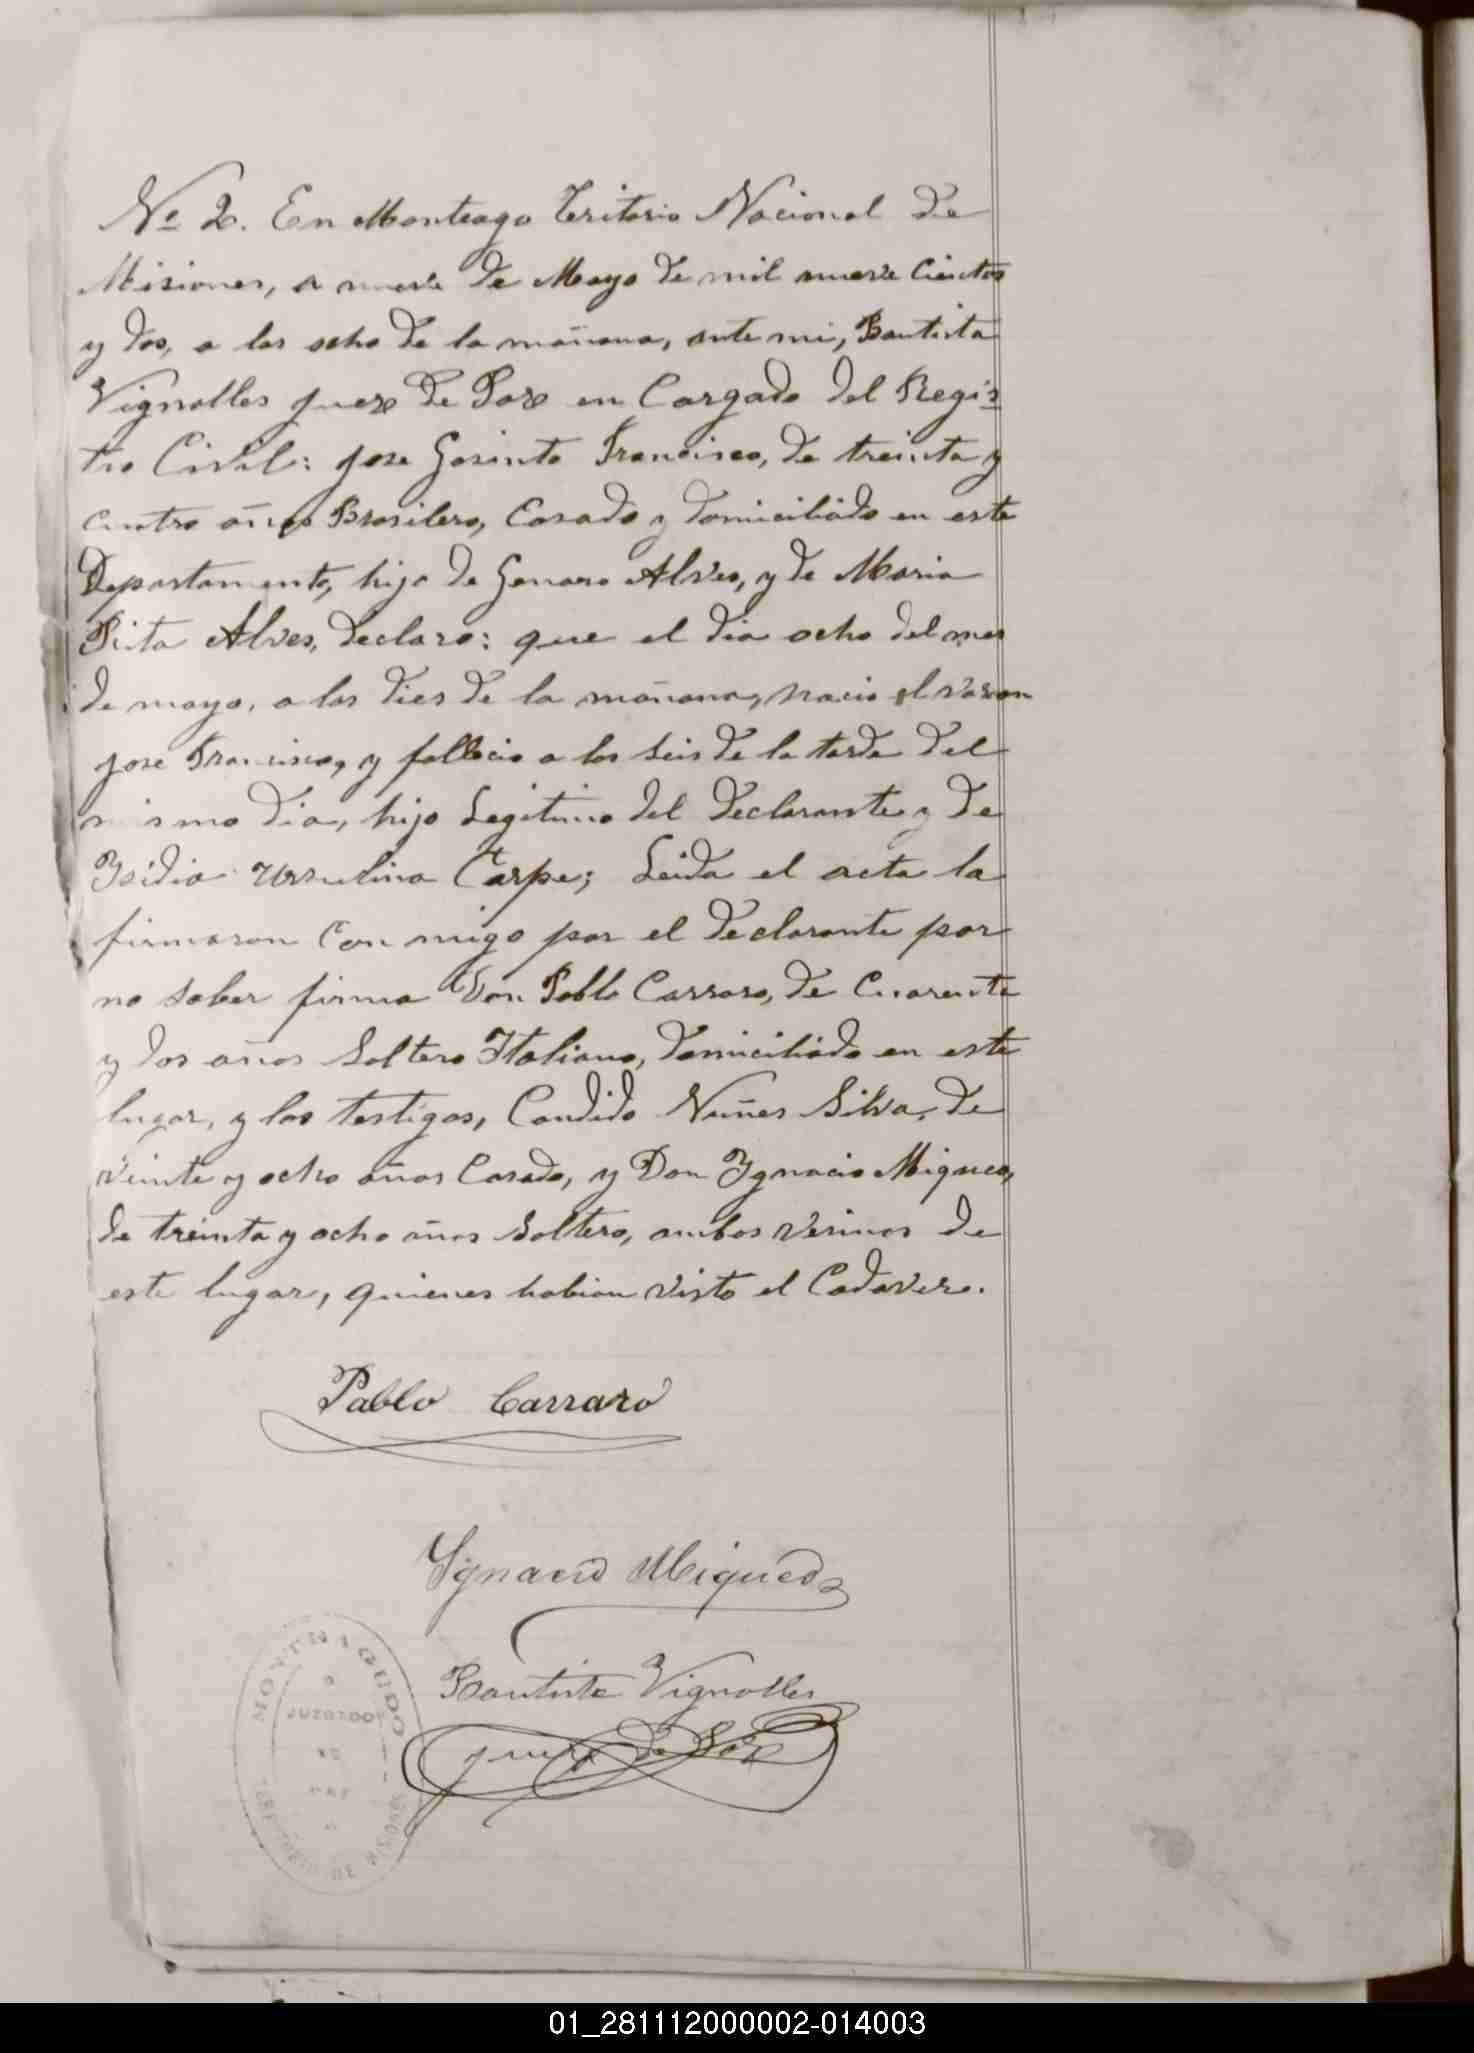 Nº 2. En Monteago Teritorio Nacional de
Misiones, a nueve de Mayo de mil nueve Cientos
y dos, a las ocho de la mañana, ante mi, Bautista
Vignolles juez de Paz en Cargado del Regis
tro Civil: jose Gasinto Francisco, de treinta y
cuatro años Brasilero, Casado y domiciliado en este
Departamento, hijo de Genaro Alves, y de Maria
Rita Alves, declaro: que el dia ocho del mes
de mayo, a las dies de la mañana, nacio el varon
jose Francisco, y fallecio a las seis de la tarde del
mismo dia, hijo Legitimo del declarante y de
Ursulina Carpe; Leida el acta la
firmaron con migo por el declarante por
no saber firma Don Pablo Carraro, de Cuarenta
y dos años Soltero Italiano, domiciliado en este
lugar, y los testigos, Candido Nuñes Silva, de
veinte y ocho años Casado, y Don Ygnacio Migueo,
de treinta y ocho años Soltero, ambos vesinos de
este lugar, quienes habian visto el Cadavere.
Pablo Carraro
Ygnacio Migueo
Bautista Vignolles
juez de Paz
MONTEAGUDO
JUZGADO
DE
PAZ
TERRITORIO DE MISIONES
01_281112000002-014003